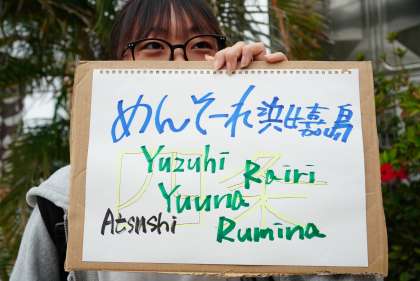 めんそーれ浜比嘉島
四条
Yuzuhi
Rairi
Yuuna
Atsushi
Rumina